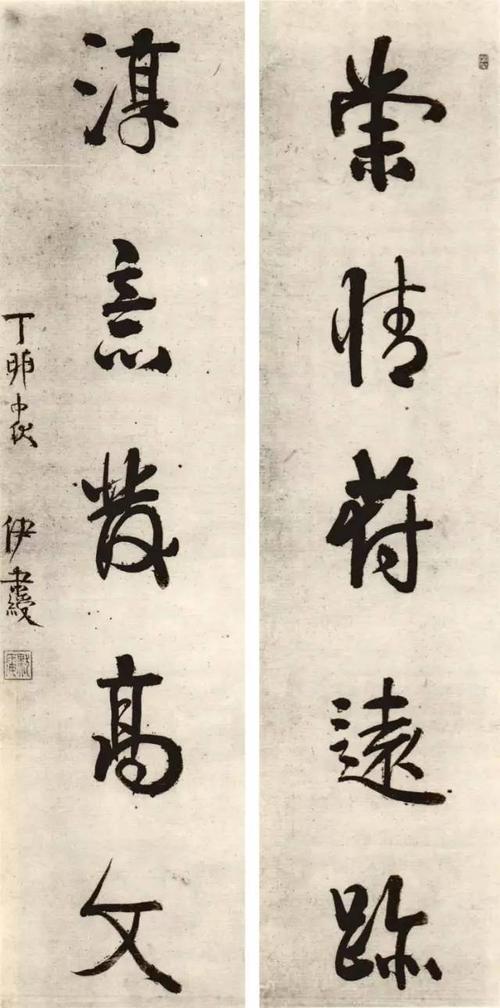 崇情符遠跡
淳意發高文
丁卯中秋 伊秉綬